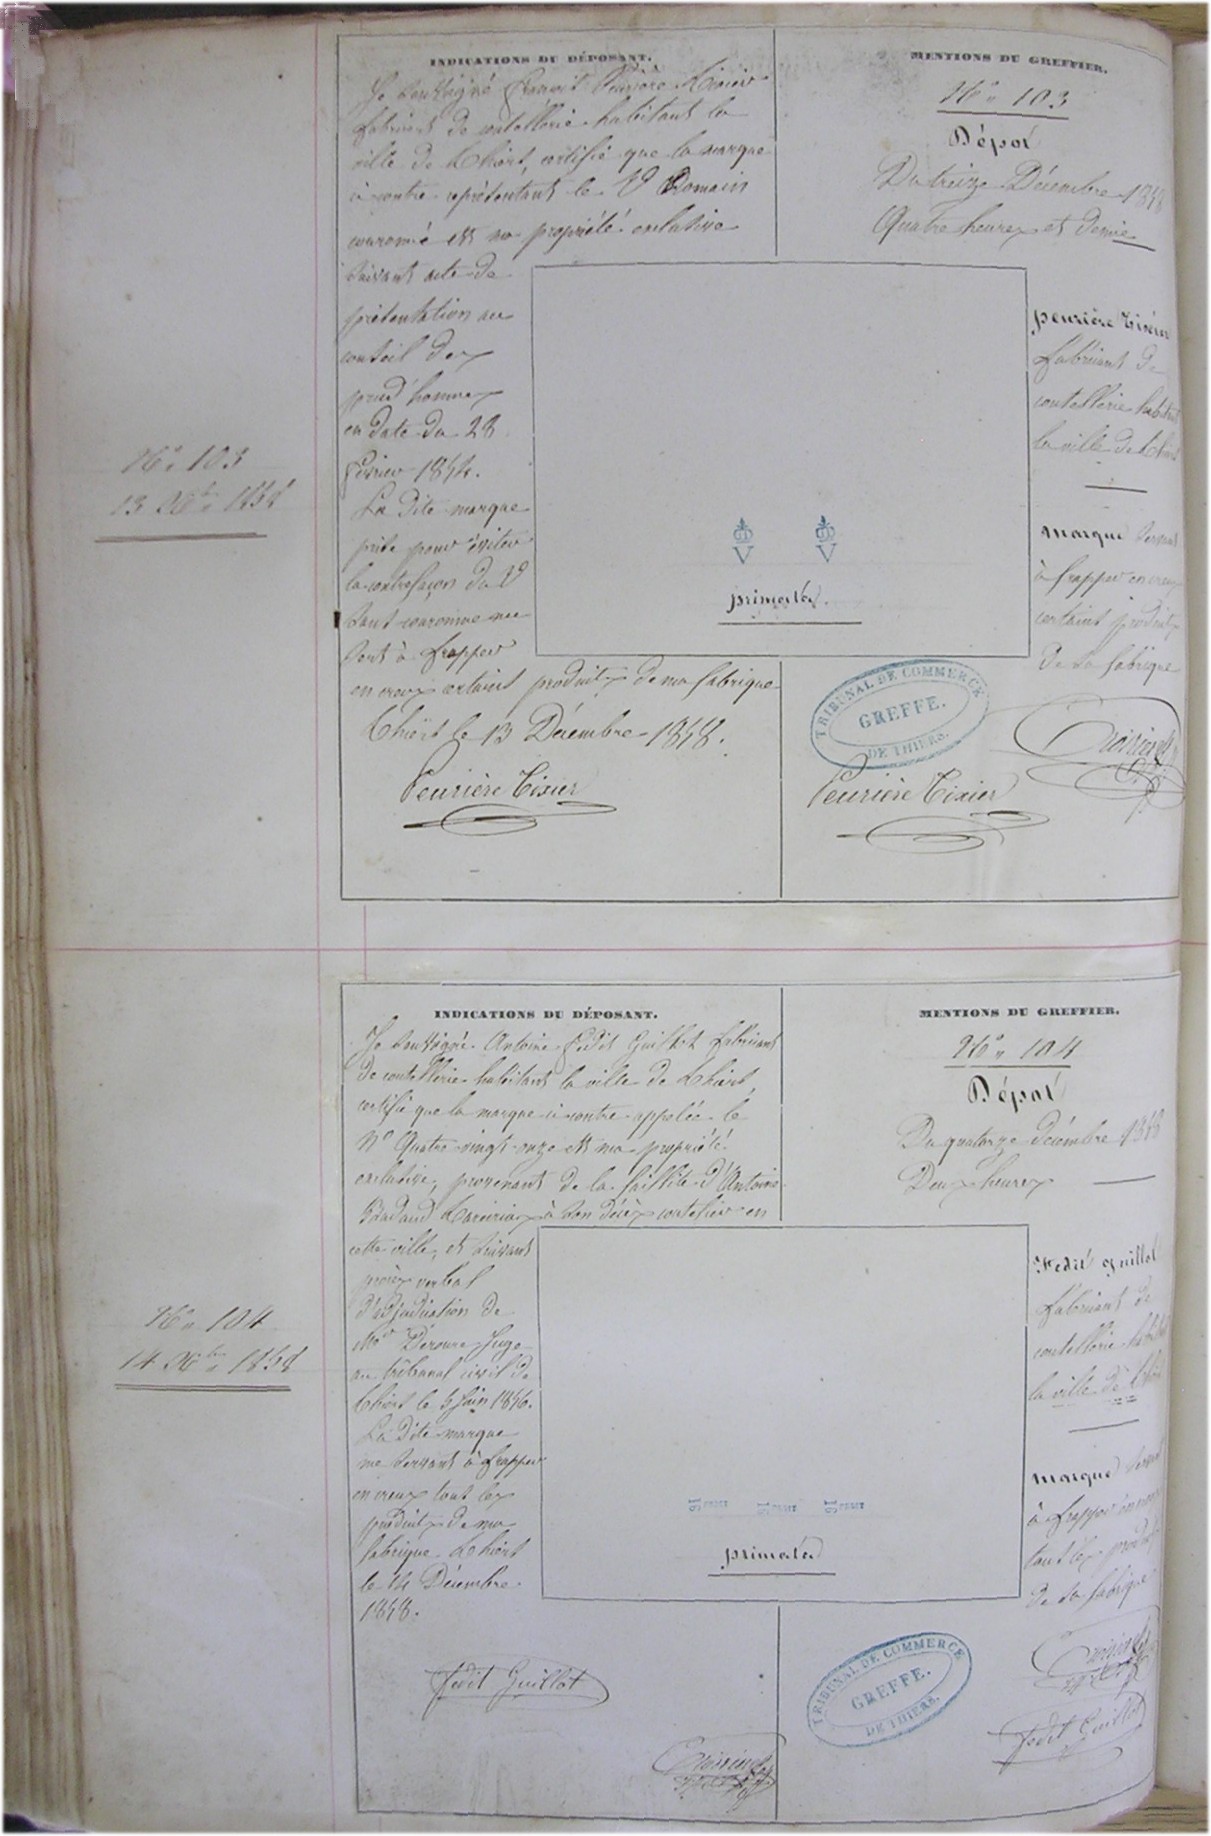 N° 103
13 Xbre 1858
INDICATIONS DU DÉPOSANT.
Je soussigné Peurière Tixier
fabricant de coutellerie habitant la
ville de Thiers, certifie que la marque
ci contre représentant le V Romain
couronné est ma propriété exclusive
suivant acte de
présentation au
conseil des
prud'hommes
en date du 28
février 1854.
La dite marque
prise pour éviter
la contrefaçon du V
sans couronne me
sert à frapper
en creux certains produits de ma fabrique
Thiers le 13 Décembre 1858.
Peurière Tixier
V V
primata.
MENTIONS DU GREFFIER.
N° 103
Dépot
Du treize Décembre 1858
Quatre heures et demie
peurière Tixier
fabricant de
coutellerie habitant
la ville de Thiers
marque servant
à frapper en creux
certains produits
de sa fabrique
TRIBUNAL DE COMMERCE
GREFFE.
DE THIERS.
Peurière Tixier
N° 104
14 Xbre 1858
INDICATIONS DU DÉPOSANT.
Je soussigné Antoine Fédit Guillot fabricant
de coutellerie habitant la ville de Thiers,
certifie que la marque ci contre appelée le
N° Quatre-vingt-onze est ma propriété
exclusive, provenant de la faillite d'Antoine
à son décès coutelier en
cette ville, et suivant
procès verbal
d'adjudication de
Mr Juge
au tribunal civil de
Thiers le 5 juin 1856.
La dite marque
me servant à frapper
en creux tous les
produits de ma
fabrique Thiers
le 14 Décembre
1858.
Fedit Guillot
91 91 91
primata
MENTIONS DU GREFFIER.
N° 104
Dépot
Du quatorze décembre 1858
Deux heures
Fedit Guillot
fabricant de
coutellerie habitant
la ville de Thiers
marque servant
à frapper en creux
tous les produits
de sa fabrique
TRIBUNAL DE COMMERCE
GREFFE.
DE THIERS.
Fedit Guillot